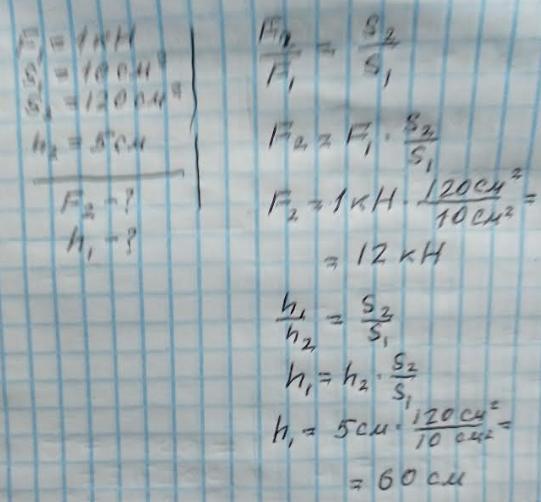 F₁ = 1 кН
S₁ = 10 см²
S₂ = 120 см²
h₂ = 5 см
F₂ - ?
h₁ - ?
F₂/F₁ = S₂/S₁
F₂ = F₁ · S₂/S₁
F₂ = 1 кН · 120 см²/10 см² =
= 12 кН
h₁/h₂ = S₂/S₁
h₁ = h₂ · S₂/S₁
h₁ = 5 см · 120 см²/10 см² =
= 60 см